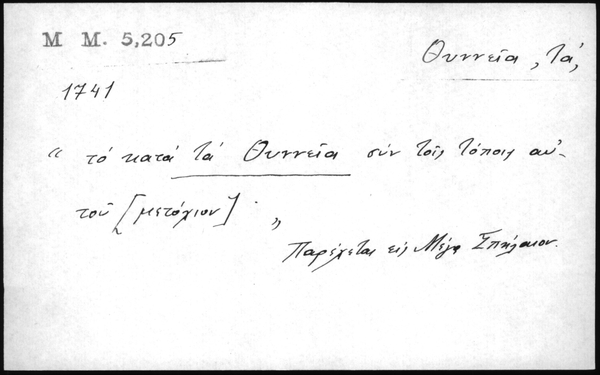 M M. 5,205
Θυννεῖα, τά,
1741
“ τό κατά τά Θυννεῖα σύν τοῖς τόποις αὐ-
τοῦ [μετόχιον] . ”
Παρέχεται εἰς Μέγα Σπήλαιον.